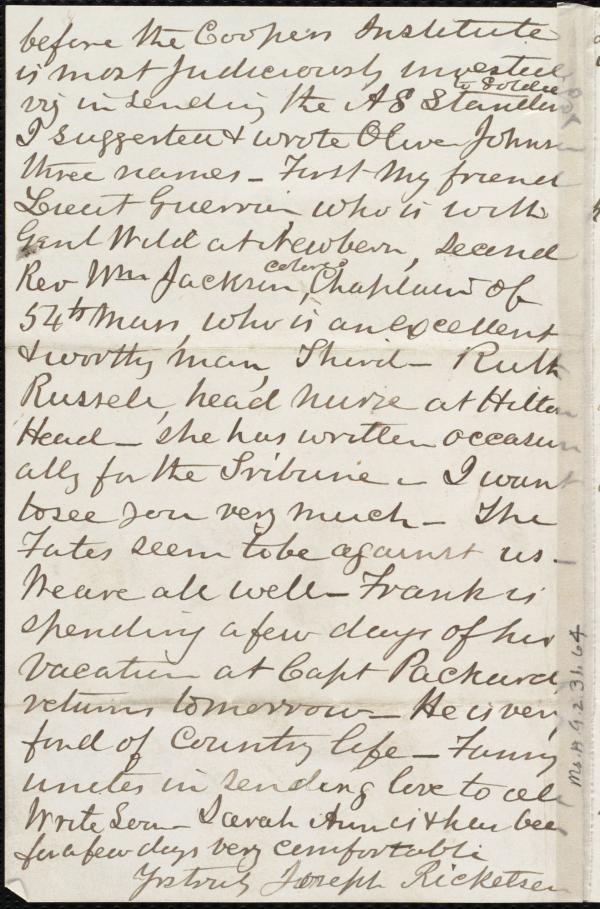 before the Coopers Institute
is most judiciously invested
to Soldiers
viz in sending the A S Standard
I suggested & wrote Oliver Johnson
three names - First my friend
Lieut Guerrin who is with
Genl Wild at Newbern, second
colored
Rev Wm Jackson, Chaplain of
54th Mass, who is an excellent
& worthy man, Third - Ruth
Russell, head nurse at Hilton
Head - she has written occasion
ally for the Tribune - I want
to see you very much - The
Fates seem to be against us -
We are all well - Frank is
spending a few days of his
vacation at Capt Packards,
returns tomorrow - He is very
fond of Country life - Fanny
unites in sending love to all
Write Soon - Sarah Ann is & has been
for a few days very comfortable
Yrs truly Joseph Ricketson
Ms.A.9.2.31.64